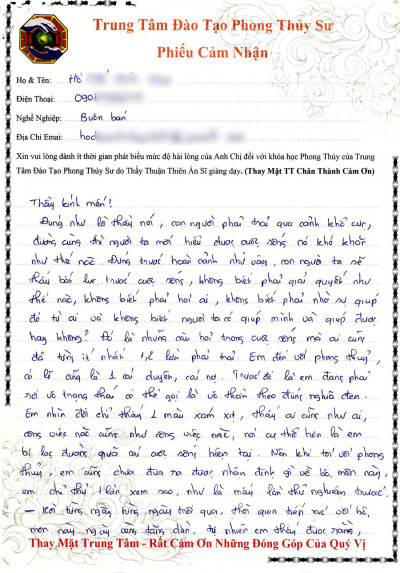 Trung Tâm Đào Tạo Phong Thủy Sư
Phiếu Cảm Nhận
Họ & Tên: Hồ
Điện Thoại: 090
Nghề Nghiệp: Buôn bán
Địa Chỉ Emai: hoc
Xin vui lòng dành ít thời gian phát biểu mức độ hài lòng của Anh Chị đối với khóa học Phong Thủy của Trung
Tâm Đào Tạo Phong Thủy Sư do Thầy Thuận Thiên Ẩn Sĩ giảng dạy. (Thay Mặt TT Chân Thành Cảm Ơn)
Thầy kính mến!
Đúng như lời thầy nói, con người phải trải qua cảnh khổ cực,
đường cùng thì người ta mới hiểu được cuộc sống nó khó khăn
như thế nào. Đứng trước hoàn cảnh như vậy, con người ta sẽ
thấy bất lực trước cuộc sống, không biết phải giải quyết như
thế nào, không biết phải hỏi ai, không biết phải nhờ sự giúp
đỡ từ ai và không biết người ta có giúp mình và giúp được
hay không? Đó là những câu hỏi trong cuộc sống mà ai cũng
đã từng ít nhất 1,2 lần phải trải. Em đến với phong thuỷ,
có lẽ cũng là 1 cái duyên, cái nợ. Trước đó là em đang phải
rơi vô trạng thái có thể gọi là vô thần theo đúng nghĩa đen.
Em nhìn đời chỉ thấy 1 màu xám xịt, thấy ai cũng như ai,
công việc nào cũng như công việc nào, nói cụ thể hơn là em
bị lạc đường quá ai cuộc sống hiện tại. Nên khi tới với phong
thuỷ, em cũng chưa đưa ra được nhận định gì về bộ môn này,
em chỉ thử 1 lần xem sao, như là mấy lần thử nghiệm trước.
- Rồi từng ngày từng ngày trôi qua, thời gian tiếp xúc với bộ
môn này ngày càng tăng dần, tự nhiên em thấy được rằng,
Thay Mặt Trung Tâm - Rất Cám Ơn Những Đóng Góp Của Quý Vị